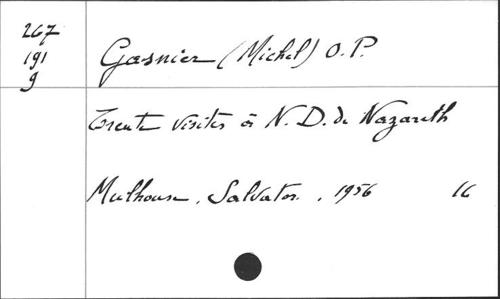 267
191
g
Gasnier (Michel) O.P.
Trente visites à N.D. de Nazareth
Mulhouse, Salvator, 1956 16